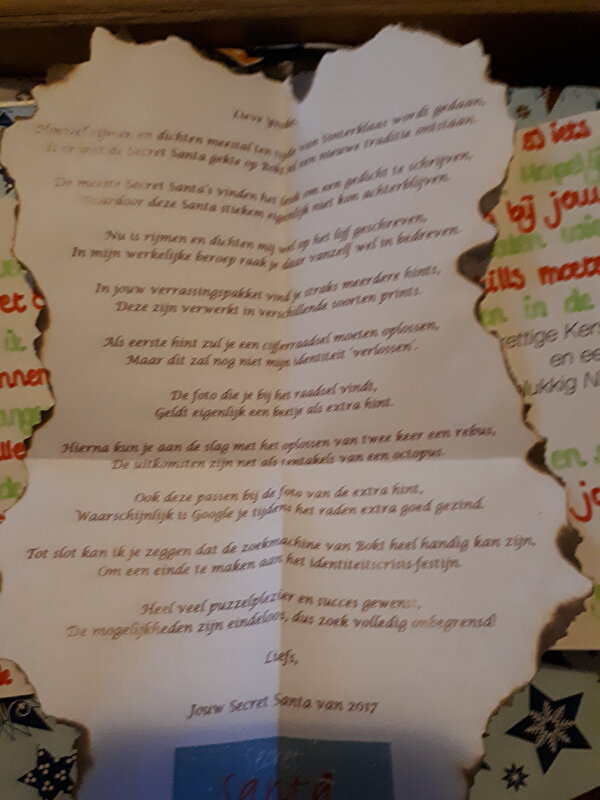 Lieve
Hoewel rijmen en dichten meestal ten tijde van Sinterklaas wordt gedaan,
Is er met de Secret Santa gekte op Bokt nl een nieuwe traditie ontstaan.
De meeste Secret Santa's vinden het leuk om een gedicht te schrijven,
Waardoor deze Santa stiekem eigenlijk niet kon achterblijven.
Nu is rijmen en dichten mij wel op het lijf geschreven,
In mijn werkelijke beroep raak je daar vanzelf wel in bedreven.
In jouw verrassingspakket vind je straks meerdere hints,
Deze zijn verwerkt in verschillende soorten prints.
Als eerste hint zul je een cijferraadsel moeten oplossen,
Maar dit zal nog niet mijn identiteit 'verlossen'.
De foto die je bij het raadsel vindt,
Geldt eigenlijk een beetje als extra hint.
Hierna kun je aan de slag met het oplossen van twee keer een rebus,
De uitkomsten zijn net als tentakels van een octopus.
Ook deze passen bij de foto van de extra hint,
Waarschijnlijk is Google je tijdens het raden extra goed gezind.
Tot slot kan ik je zeggen dat de zoekmachine van Bokt heel handig kan zijn,
Om een einde te maken aan het identiteitscrisis-festijn.
Heel veel puzzelplezier en succes gewenst,
De mogelijkheden zijn eindeloos, dus zoek volledig onbegrensd!
Liefs,
Jouw Secret Santa van 2017
Secret
Santa
es iets
bij jou
moet
en in de
en ee